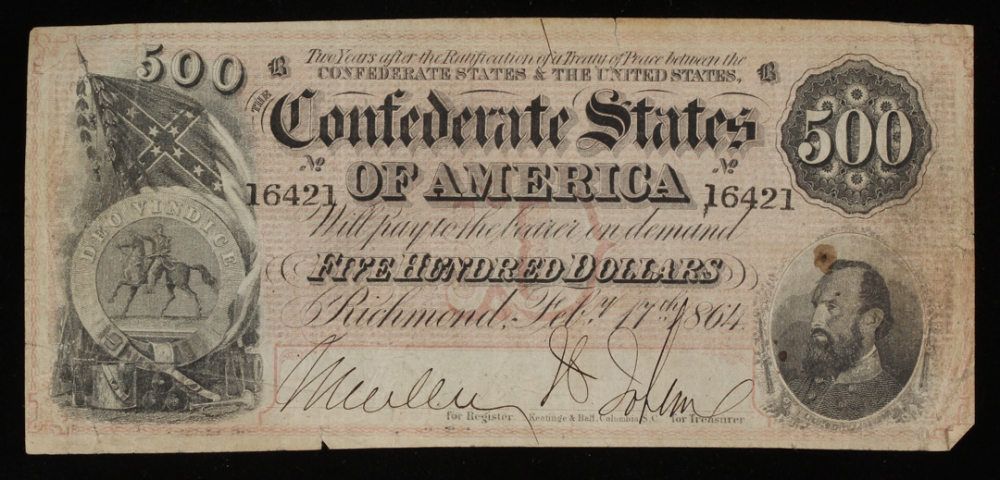 500
B Two Years after the Ratification of a Treaty of Peace between the B
CONFEDERATE STATES & THE UNITED STATES,
THE
Confederate States
500
No No
16421 OF AMERICA 16421
DEO VINDICE
Will pay to the bearer on demand
FIVE HUNDRED DOLLARS
Richmond, Feby. 17th, 1864.
for Register. Keatinge & Ball, Columbia, S.C. for Treasurer